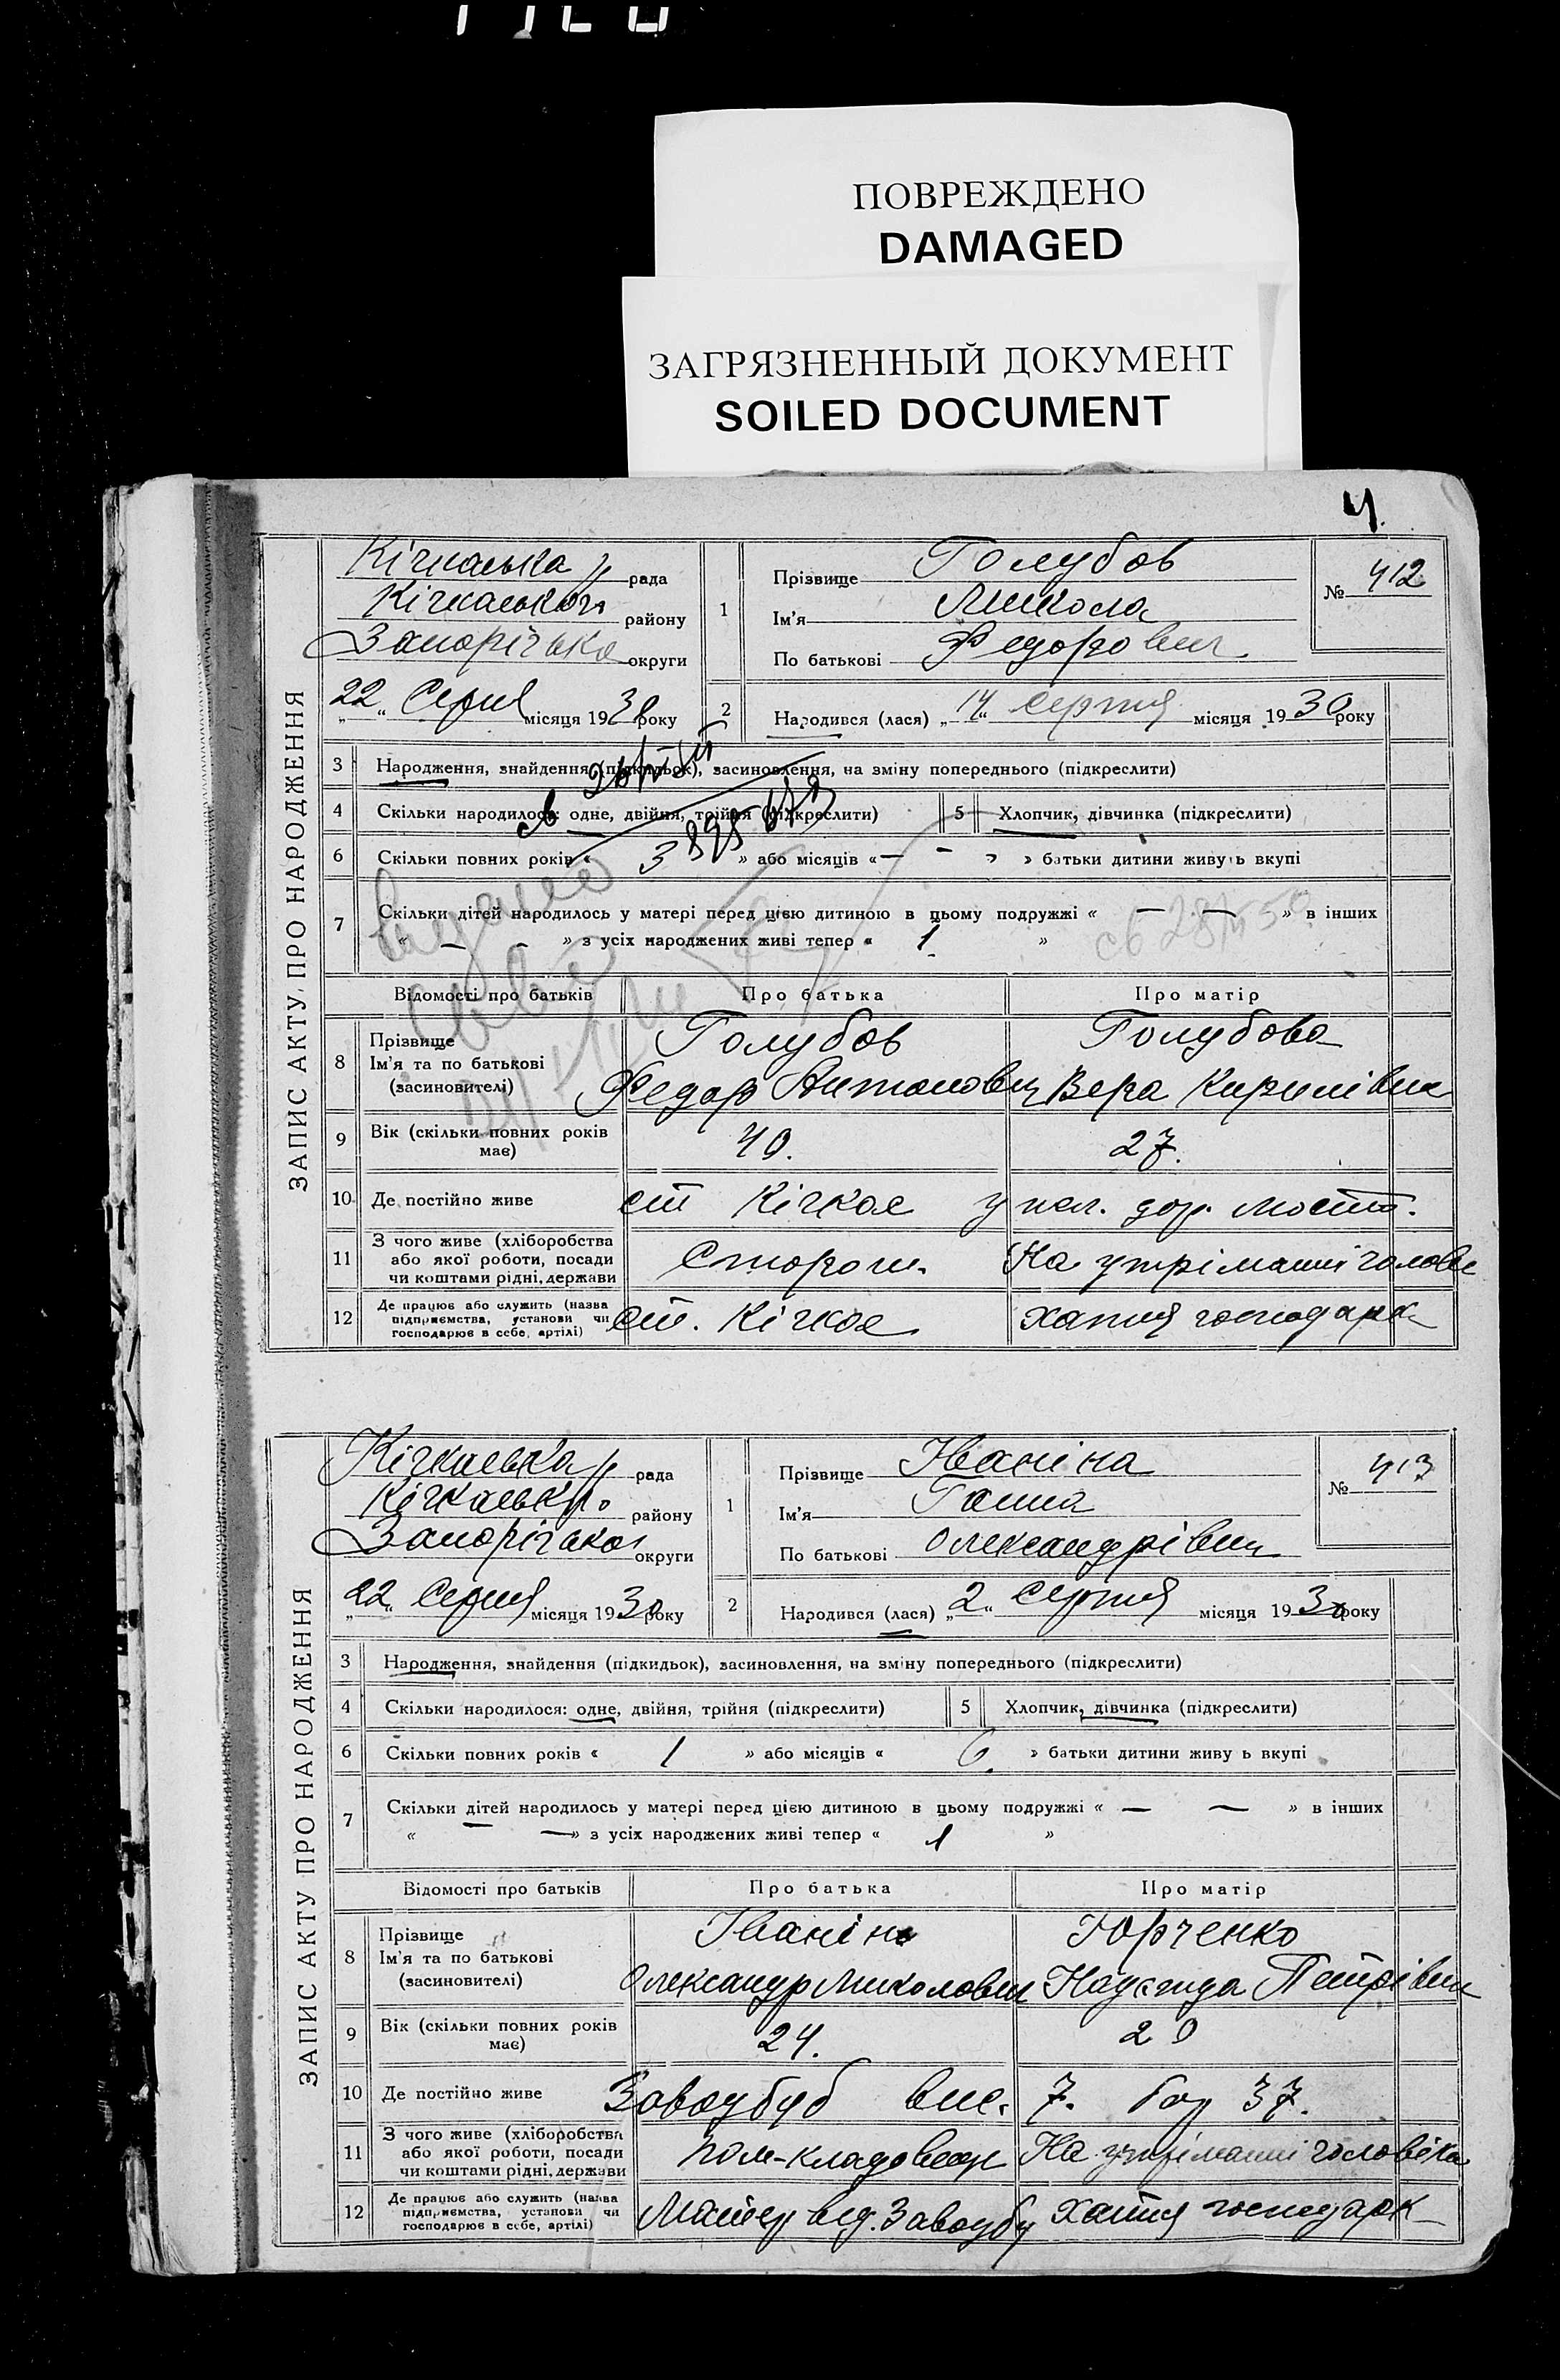 ПОВРЕЖДЕНО
DAMAGED
ЗАГРЯЗНЕННЫЙ ДОКУМЕНТ
SOILED DOCUMENT
4.
ЗАПИС АКТУ ПРО НАРОДЖЕННЯ
Кічкаська р рада
Кічкаського району
Запорізька округи
„22“ Серпня місяця 1930 року
1
Прізвище Голубов
Ім'я Микола
По батькові Федорович
№ 412
2
Народився (лася) „14“ серпня місяця 1930 року
3 Народження, знайдення (підкидьок), засиновлення, на зміну попереднього (підкреслити)
4 Скільки народилося: одне, двійня, трійня (підкреслити)
5 Хлопчик, дівчинка (підкреслити)
6 Скільки повних років « 3 » або місяців « — » батьки дитини живуть вкупі
7 Скільки дітей народилось у матері перед цією дитиною в цьому подружжі « — — » в інших
« — — » з усіх народжених живі тепер « 1 »
Відомості про батьків Про батька Про матір
8 Прізвище
Ім'я та по батькові
(засиновителі)
Голубов
Федор Антонович
Голубова
Вера Кирилівна
9 Вік (скільки повних років має) 40. 27.
10 Де постійно живе ст Кічкас у жел. дор. моста.
11 З чого живе (хліборобства
або якої роботи, посади
чи коштами рідні, держави
Сторож. На утріманні чолове
12 Де працює або служить (назва
підприємства, установи чи
господарює в себе, артілі)
ст. Кічкас хатня господарк
ЗАПИС АКТУ ПРО НАРОДЖЕННЯ
Кічкаська р рада
Кічкасько району
Запорізько округи
„22“ Серпня місяця 1930 року
1
Прізвище Іваніна
Ім'я Ганна
По батькові Олександрівна
№ 413
2
Народився (лася) „2“ Серпня місяця 1930 року
3 Народження, знайдення (підкидьок), засиновлення, на зміну попереднього (підкреслити)
4 Скільки народилося: одне, двійня, трійня (підкреслити)
5 Хлопчик, дівчинка (підкреслити)
6 Скільки повних років « 1 » або місяців « 6. » батьки дитини живу ь вкупі
7 Скільки дітей народилось у матері перед цією дитиною в цьому подружжі « — — » в інших
« — — » з усіх народжених живі тепер « 1 »
Відомості про батьків Про батька Про матір
8 Прізвище
Ім'я та по батькові
(засиновителі)
Іванін
Олександр Миколович
Юрченко
Надежда Петрівна
9 Вік (скільки повних років має) 24. 20
10 Де постійно живе Заводбуд вис. 7. 37.
11 З чого живе (хліборобства
або якої роботи, посади
чи коштами рідні, держави
Пом-кладовщик На утріманні чоловіка
12 Де працює або служить (назва
підприємства, установи чи
господарює в себе, артілі)
Матер від. Заводбу хатня господарк